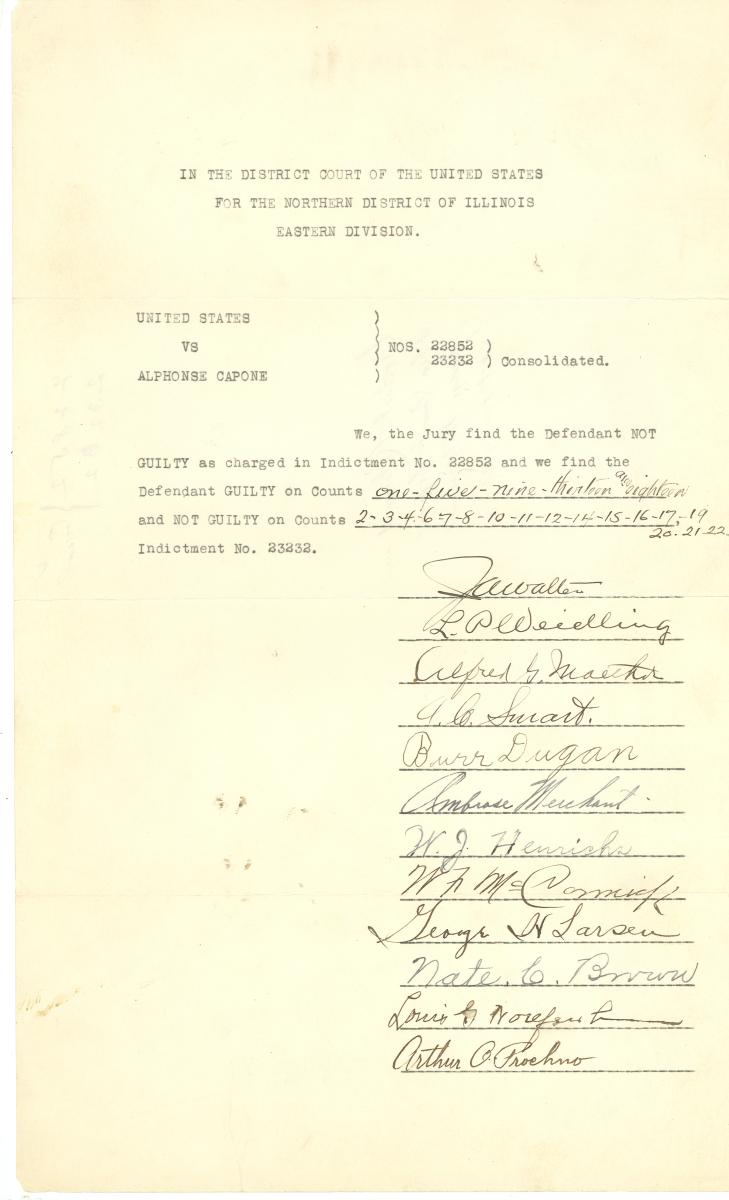 IN THE DISTRICT COURT OF THE UNITED STATES
FOR THE NORTHERN DISTRICT OF ILLINOIS
EASTERN DIVISION.
UNITED STATES )
)
VS ) NOS. 22852 )
) 23232 ) Consolidated.
ALPHONSE CAPONE )
We, the Jury find the Defendant NOT
GUILTY as charged in Indictment No. 22852 and we find the
Defendant GUILTY on Counts one-five-nine-thirteen and eighteen
and NOT GUILTY on Counts 2-3-4-6-7-8-10-11-12-14-15-16-17-19
20-21-22
Indictment No. 23232.
L. P. Weidling
Alfred G.
A. C. Smart.
Burr Dugan
Ambrose Merchant
W. J. Henrichs
McCormick
George H Larsen
Nate. C. Brown
Louis G
Arthur O. Prochno